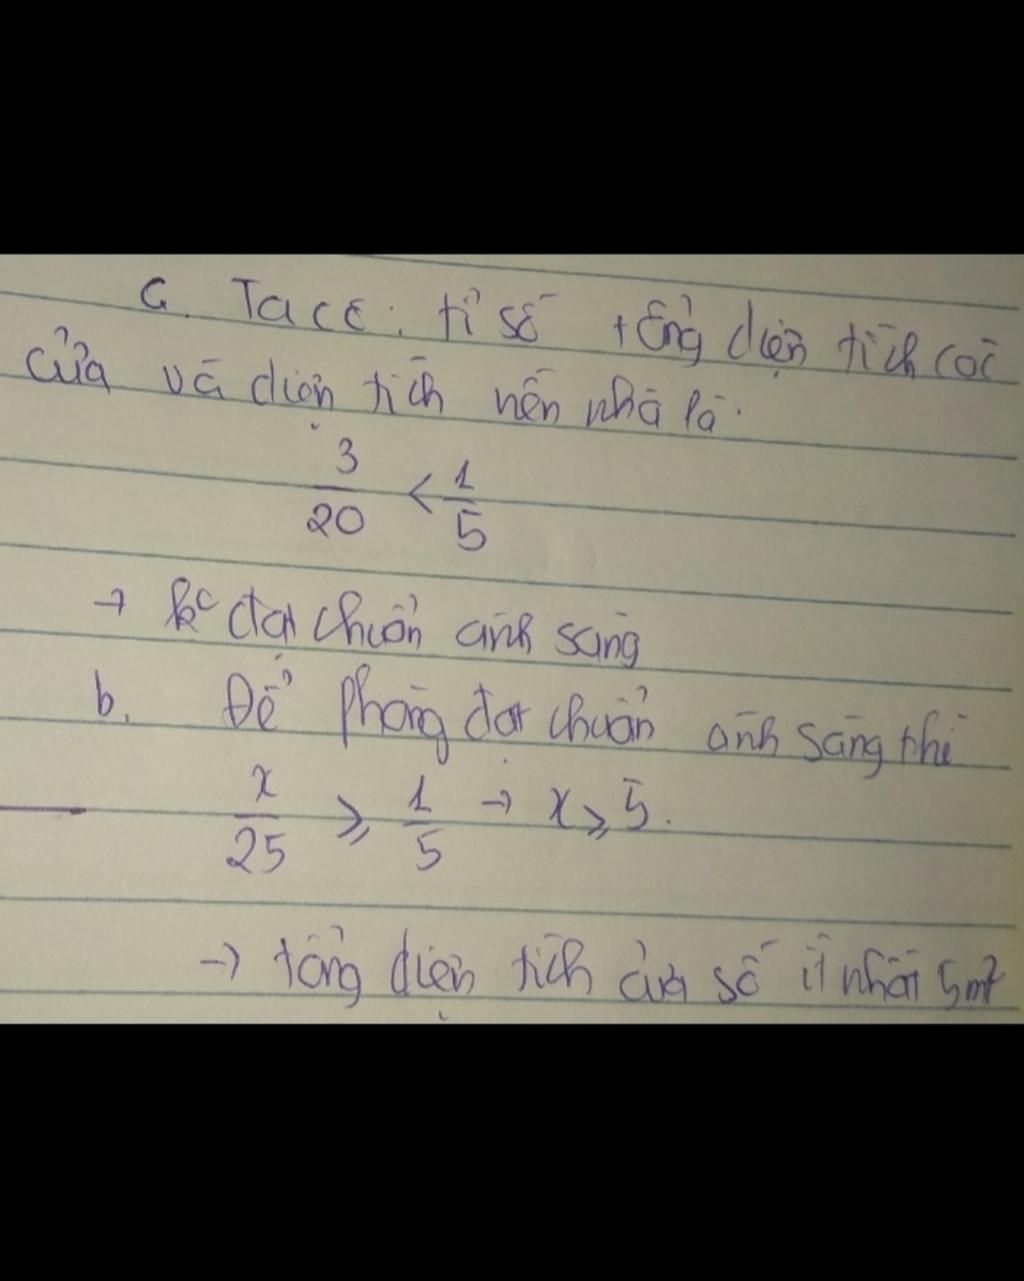 a. Ta có: tỉ số tổng diện tích các
cửa và diện tích nền nhà là:
3/20 < 1/5
→ k° đạt chuẩn ánh sáng
b. Để phòng đạt chuẩn ánh sáng thì
x/25 ⩾ 1/5 → x ⩾ 5.
→ tổng diện tích cửa sổ ít nhất 5m²